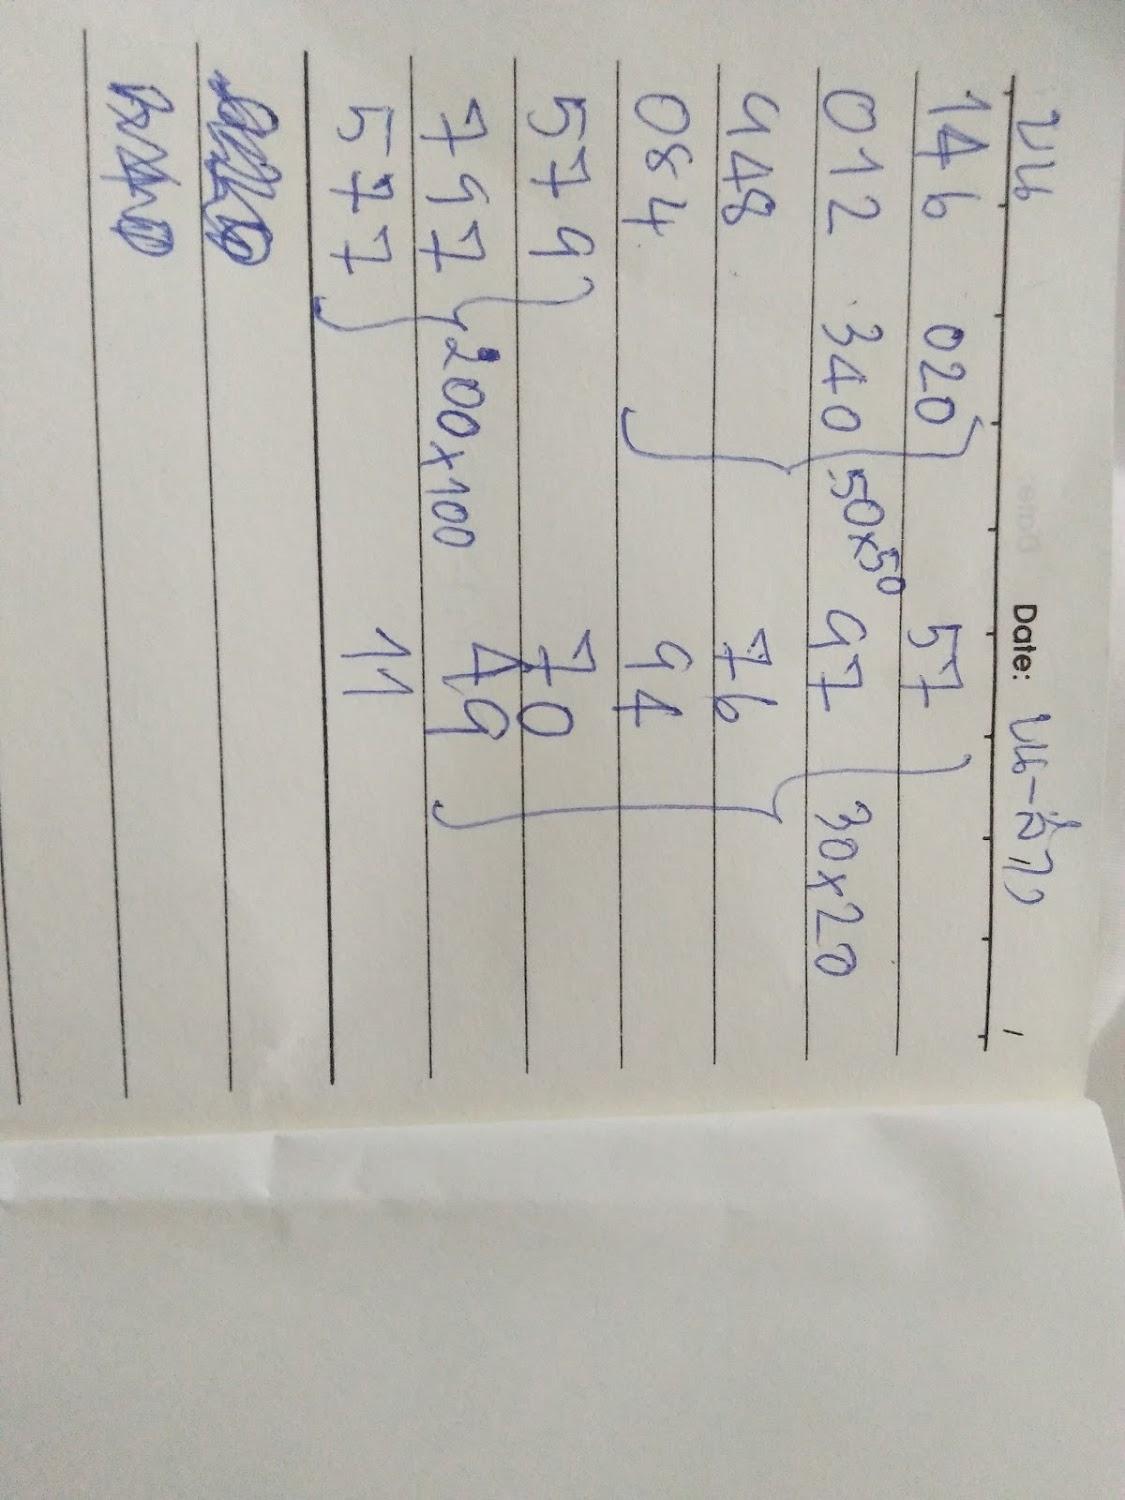 บน Date: บน-ล่าง /
146 020 57
012 340 50x50 97 30x20
948 76
084 94
579 70
797 200x100 49
577 11